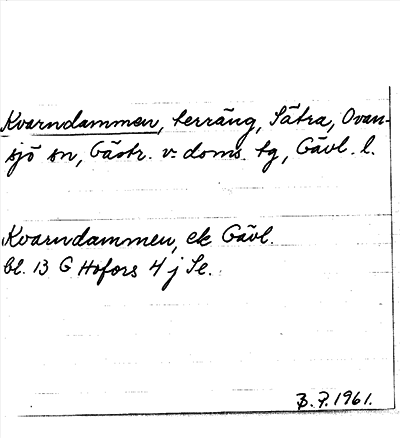 Kvarndammen, terräng, Sätra, Ovan-
sjö sn, Gästr. v:a doms. tg, Gävl. l.
Kvarndammen, ek Gävl.
bl. 13 G Hofors 4 j Se.
3.7.1961.